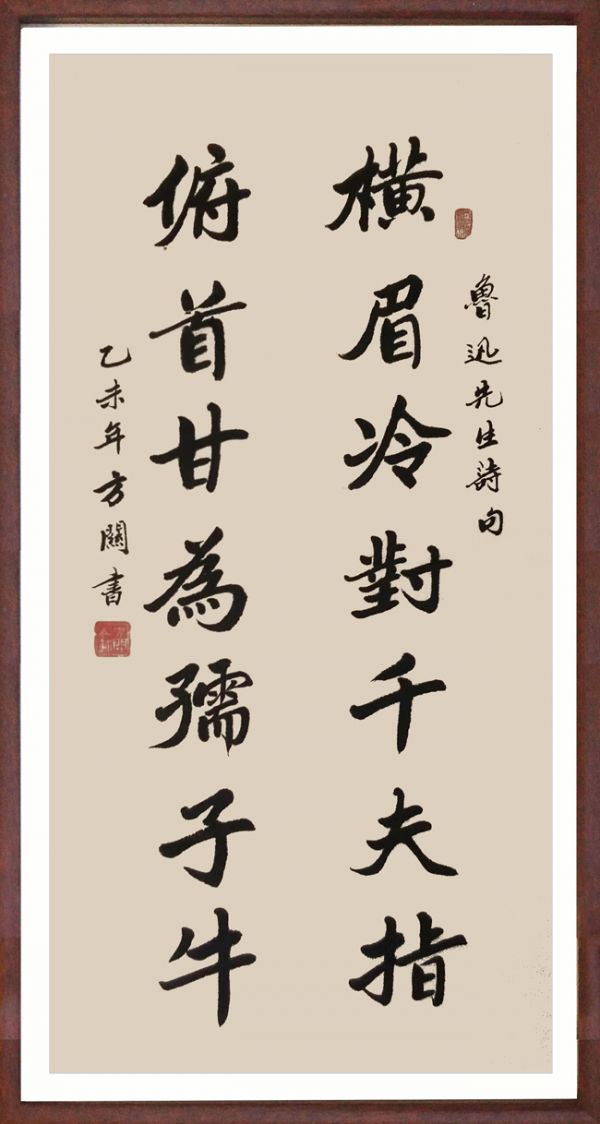 魯迅先生詩句
橫眉冷對千夫指
俯首甘為孺子牛
乙未年方闗書